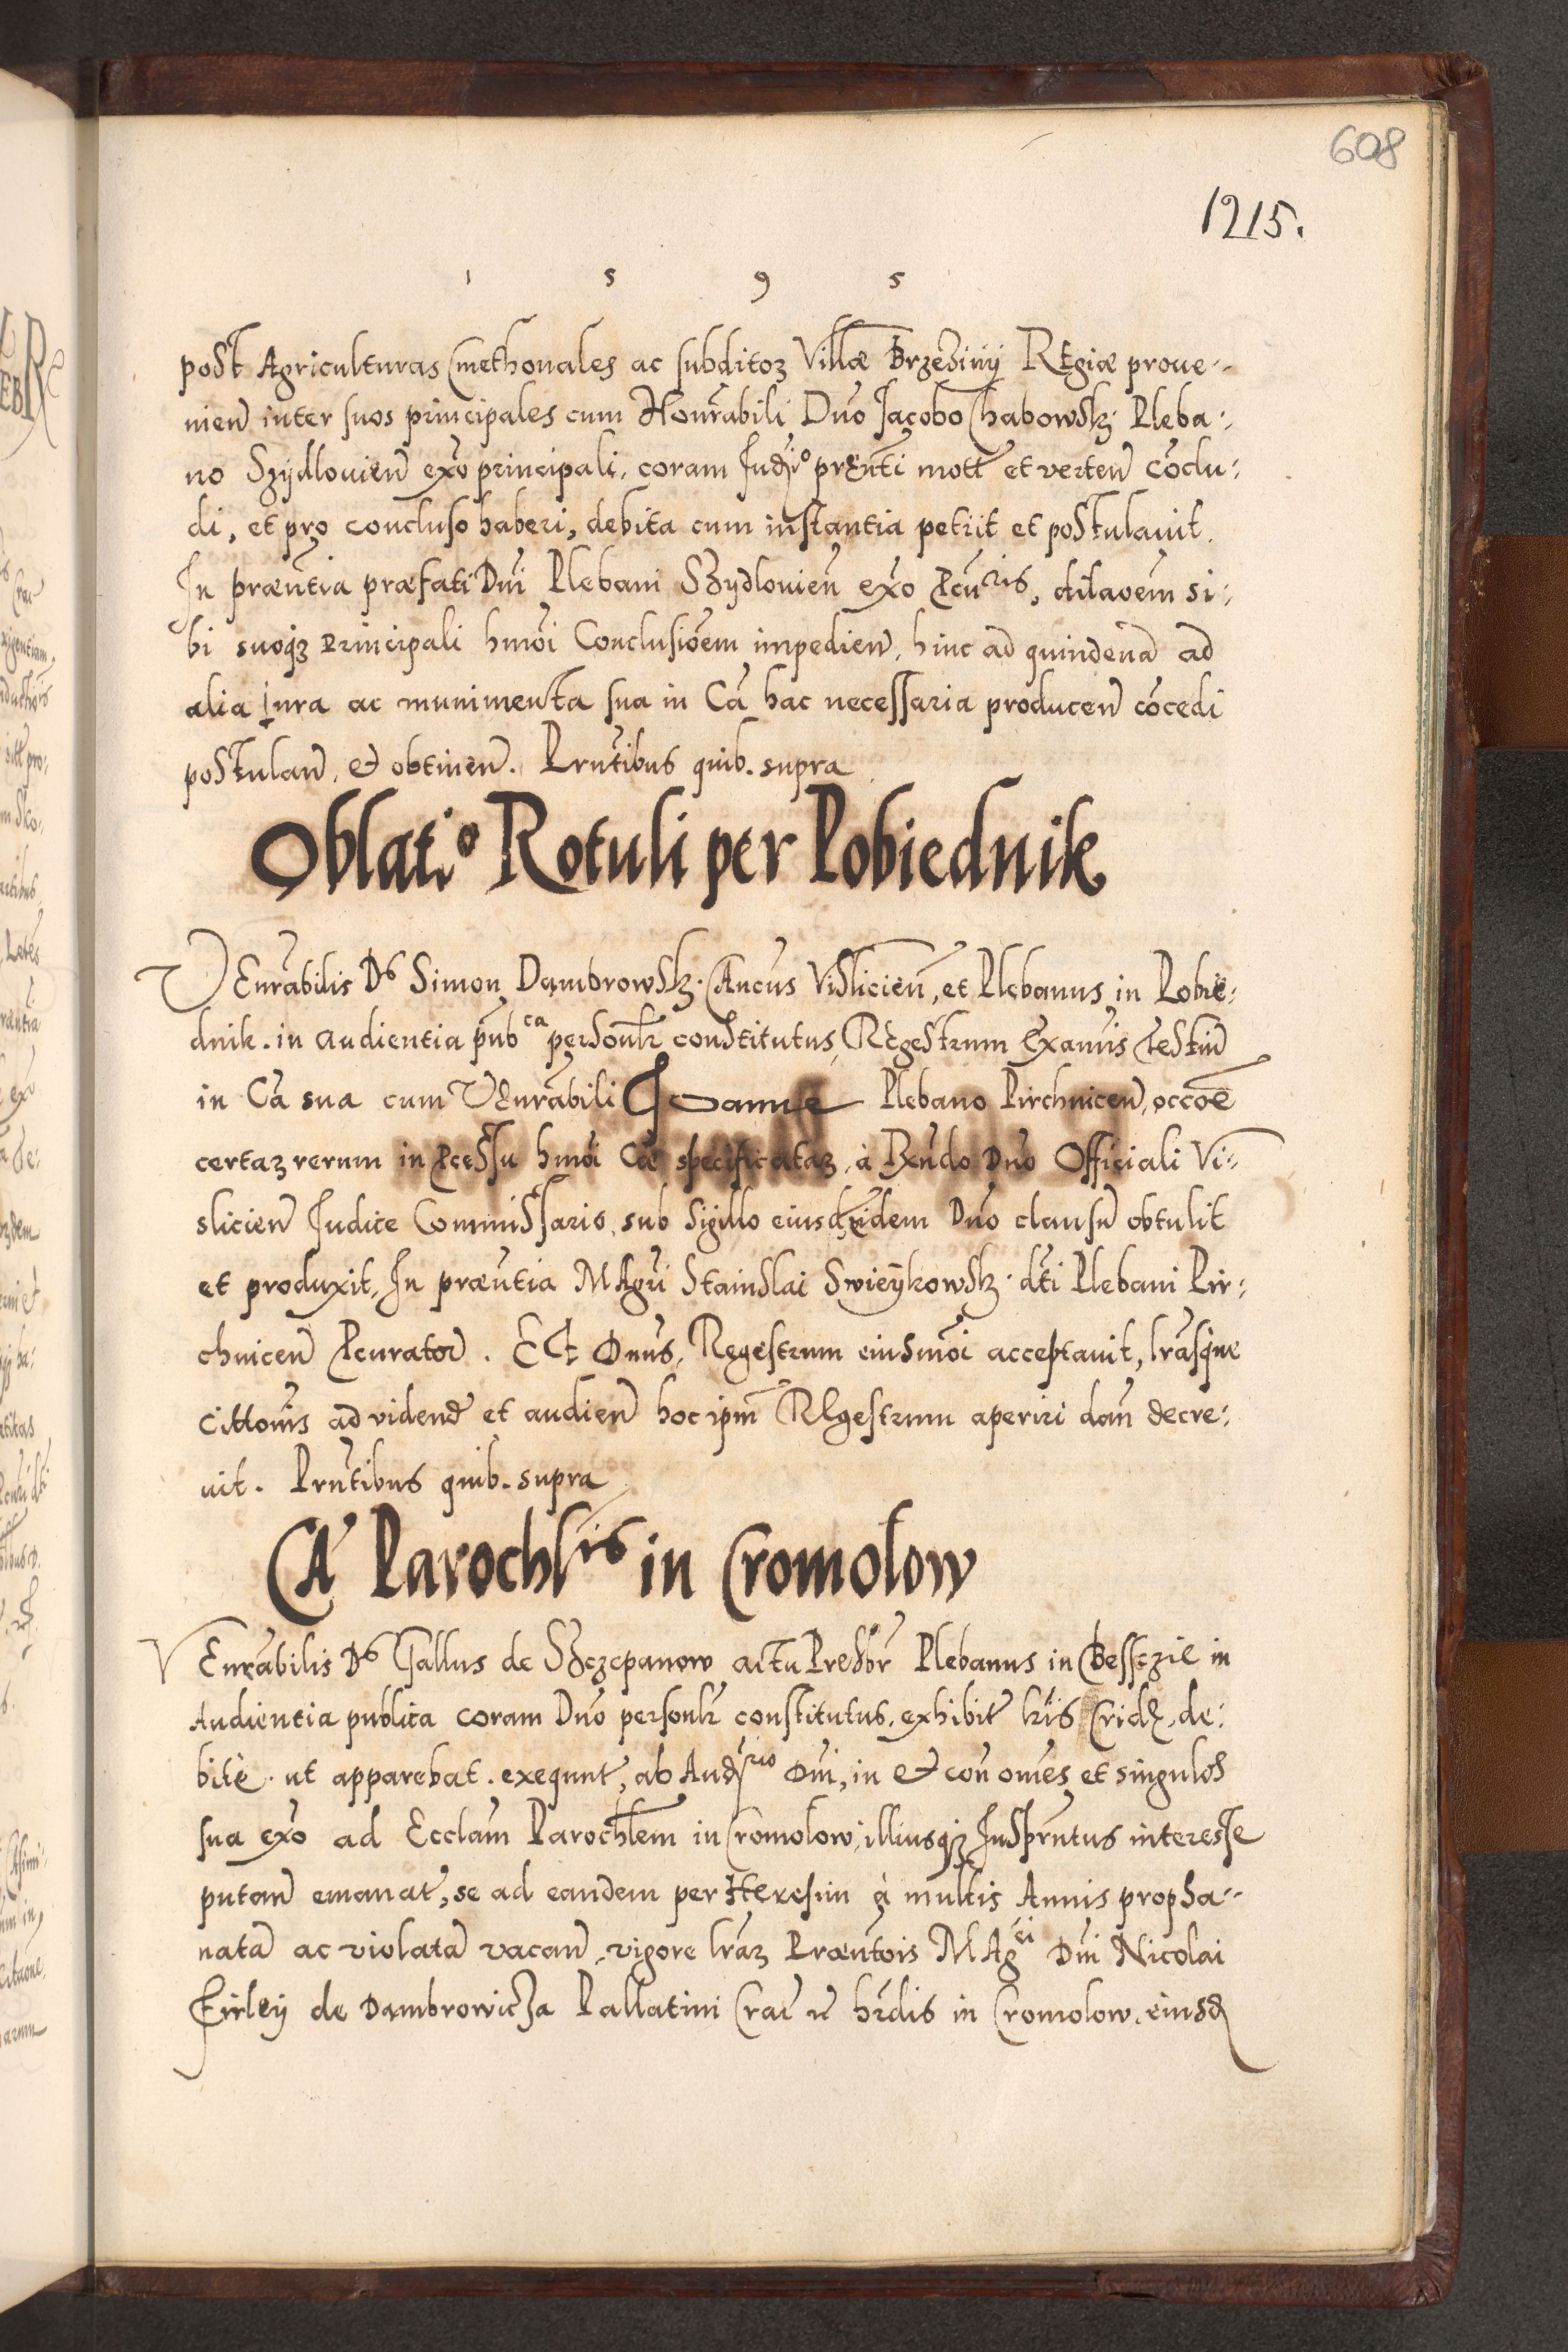 608
1215.
1 5 9 5
post Agriculturas Cmethonales ac subditoꝝ Villæ Brzeziny REgiæ proue-
nieñ inter suos principales cum Honrabili Dño Jacobo Chabowsk. Pleba-
no Szydlovieñ exo principali, coram Judio prñti mott et verteñ coclu-
di, et pro concluso haberi, debita cum instantia petiit et postulavit.
In præntia præfati Dni Plebani Szydlovieñ exo Pcuris, dilaoem si-
bi suoqꝫ Principali hmoi Conclusioem impedieñ, hinc ad quindenã ad
alia jura ac munimenta sua in Cã hac necessaria produceñ cõcedi
postulañ, & obtineñ. Prntibus quib. supra
Oblatio Rotuli per Pobiednik
VEnrabilis Ds Simon Dambrowsk. Cancus Vislicieñ, et Plebanus in Pobie-
dnik. in audientia pubca personlr constitutus, REgestrum Examis Testiũ
in Cã sua cum VEnrabili Joanne Plebano Pirchniceñ, occoe
certaꝝ rerum in Pcessu hmoi Cæ specificataꝝ, à Rxndo Dño Officiali Vi-
slicieñ Judice Commissario, sub Sigillo eiusdem Dño clausũ obtulit
et produxit, In præntia MAgri Stanislai Swieykowsk. dti Plebani Pir-
chniceñ Pcurator. Et Dnus, Regestrum eiusmoi acceptavit, lrasque
Cittonis ad videnđ et audieñ hoc ipm REgestrum aperiri dañ decre-
uit. Prntibus quib. supra
CA Parochlis in Cromolow
VEnrabilis Ds Gallus de Szczepanow actu Presbr Plebanus in Bessczie in
Audientia publica coram Dño personlr constitutus, exhibit lris Crid, de-
bite. ut apparebat. exequut, ab Audrio Dni, in & con omes et singulos
sua exo ad Ecclam Parochlem in Cromolow, illiusqꝫ Insprntus interesse
putañ emanat, se ad eandem per Heresim à multis Annis propha-
natã ac violatã vacañ, vigore lraꝝ Præntois MAgci Dni Nicolai
Firley de Dambrowicza Pallatini Crac hrdis in Cromolow, eiusd